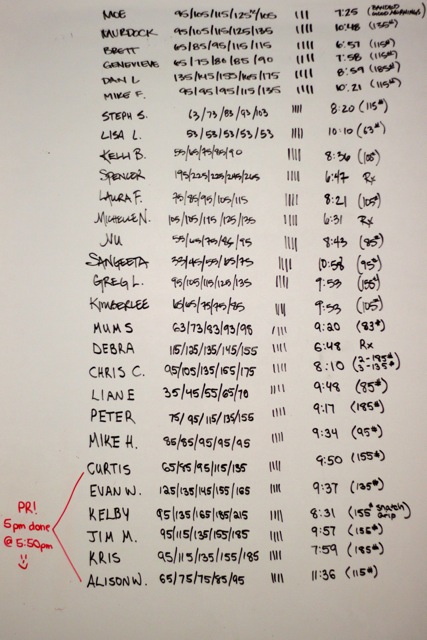 MOE 95/105/115/125/105 |||| 7:25 (BANDED GOOD MORNINGS)
MURDOCK 95/105/115/125/135 |||| 10:48 (135#)
BRETT 65/85/95/115/115 |||| 6:57 (115#)
GENEVIEVE 65/75/80/85/90 |||| 7:58 (115#)
DAN L 135/145/155/165/175 |||| 8:59 (185#)
MIKE F. 95/95/95/115/135 |||| 10:21 (115#)
STEPH S. 63/73/83/93/103 |||| 8:20 (115#)
LISA L. 53/53/53/53/53 |||| 10:10 (63#)
KELLI B. 55/65/75/85/90 |||| 8:36 (105#)
SPENCER 195/225/235/245/265 |||| 6:47 Rx
LAURA F. 75/85/95/105/115 |||| 8:21 (105#)
MICHELLE N. 105/105/115/125/135 |||| 6:31 Rx
NU 55/65/75/85/95 |||| 8:43 (95#)
SANGEETA 35/45/55/65/75 |||| 10:58 (95#)
GREG L. 95/105/115/125/135 |||| 9:53 (155#)
KIMBERLEE 65/65/75/75/85 |||| 9:53 (105#)
MUMS 63/73/83/93/98 |||| 9:20 (83#)
DEBRA 115/125/135/145/155 |||| 6:48 Rx
CHRIS C. 95/105/135/155/175 |||| 8:10 (2-185# 3-135#)
LIANE 35/45/55/65/70 |||| 9:48 (85#)
PETER 75/95/115/135/155 |||| 9:17 (185#)
MIKE H. 85/85/95/95/95 |||| 9:34 (95#)
CURTIS 65/85/95/115/135 |||| 9:50 (155#)
EVAN W. 125/135/145/155/165 |||| 9:37 (135#)
KELBY 95/135/165/185/215 |||| 8:31 (155# snatch grip)
JIM M. 95/115/135/155/185 |||| 9:57 (155#)
KRIS 95/115/135/155/185 |||| 7:59 (185#)
ALISON W. 65/75/75/85/95 |||| 11:36 (115#)
PR!
5pm done
@ 5:50pm